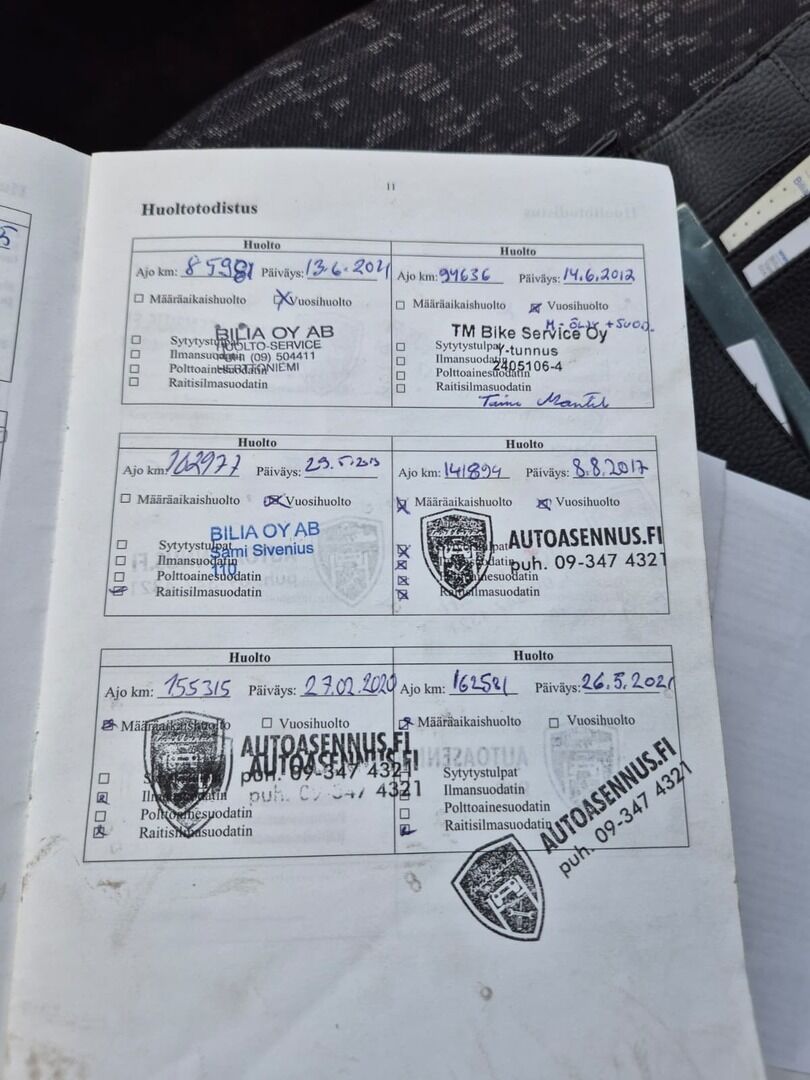 11
Huoltotodistus
Huolto
Ajo km: 85981 Päiväys: 13.6.2011
Määräaikaishuolto Vuosihuolto
BILIA OY AB
HUOLTO-SERVICE
PUH (09) 504411
HERTTONIEMI
Sytytystulpat
Ilmansuodatin
Polttoainesuodatin
Raitisilmasuodatin
Huolto
Ajo km: 94636 Päiväys: 14.6.2012
Määräaikaishuolto Vuosihuolto
M-ÖLJY + SUOD.
TM Bike Service Oy
Y-tunnus
2405106-4
Sytytystulpat
Ilmansuodatin
Polttoainesuodatin
Raitisilmasuodatin
Huolto
Ajo km: 102977 Päiväys: 29.5.2013
Määräaikaishuolto Vuosihuolto
BILIA OY AB
Sami Sivenius
110
Sytytystulpat
Ilmansuodatin
Polttoainesuodatin
Raitisilmasuodatin
Huolto
Ajo km: 141894 Päiväys: 8.8.2017
Määräaikaishuolto Vuosihuolto
AUTOASENNUS.FI
puh. 09-347 4321
Sytytystulpat
Ilmansuodatin
Polttoainesuodatin
Raitisilmasuodatin
Huolto
Ajo km: 155315 Päiväys: 27.02.2020
Määräaikaishuolto Vuosihuolto
AUTOASENNUS.FI
AUTOASENNUS.FI
puh. 09-347 4321
puh. 09-347 4321
Sytytystulpat
Ilmansuodatin
Polttoainesuodatin
Raitisilmasuodatin
Huolto
Ajo km: 162581 Päiväys: 26.5.2021
Määräaikaishuolto Vuosihuolto
Sytytystulpat
Ilmansuodatin
Polttoainesuodatin
Raitisilmasuodatin
AUTOASENNUS.FI
puh. 09-347 4321